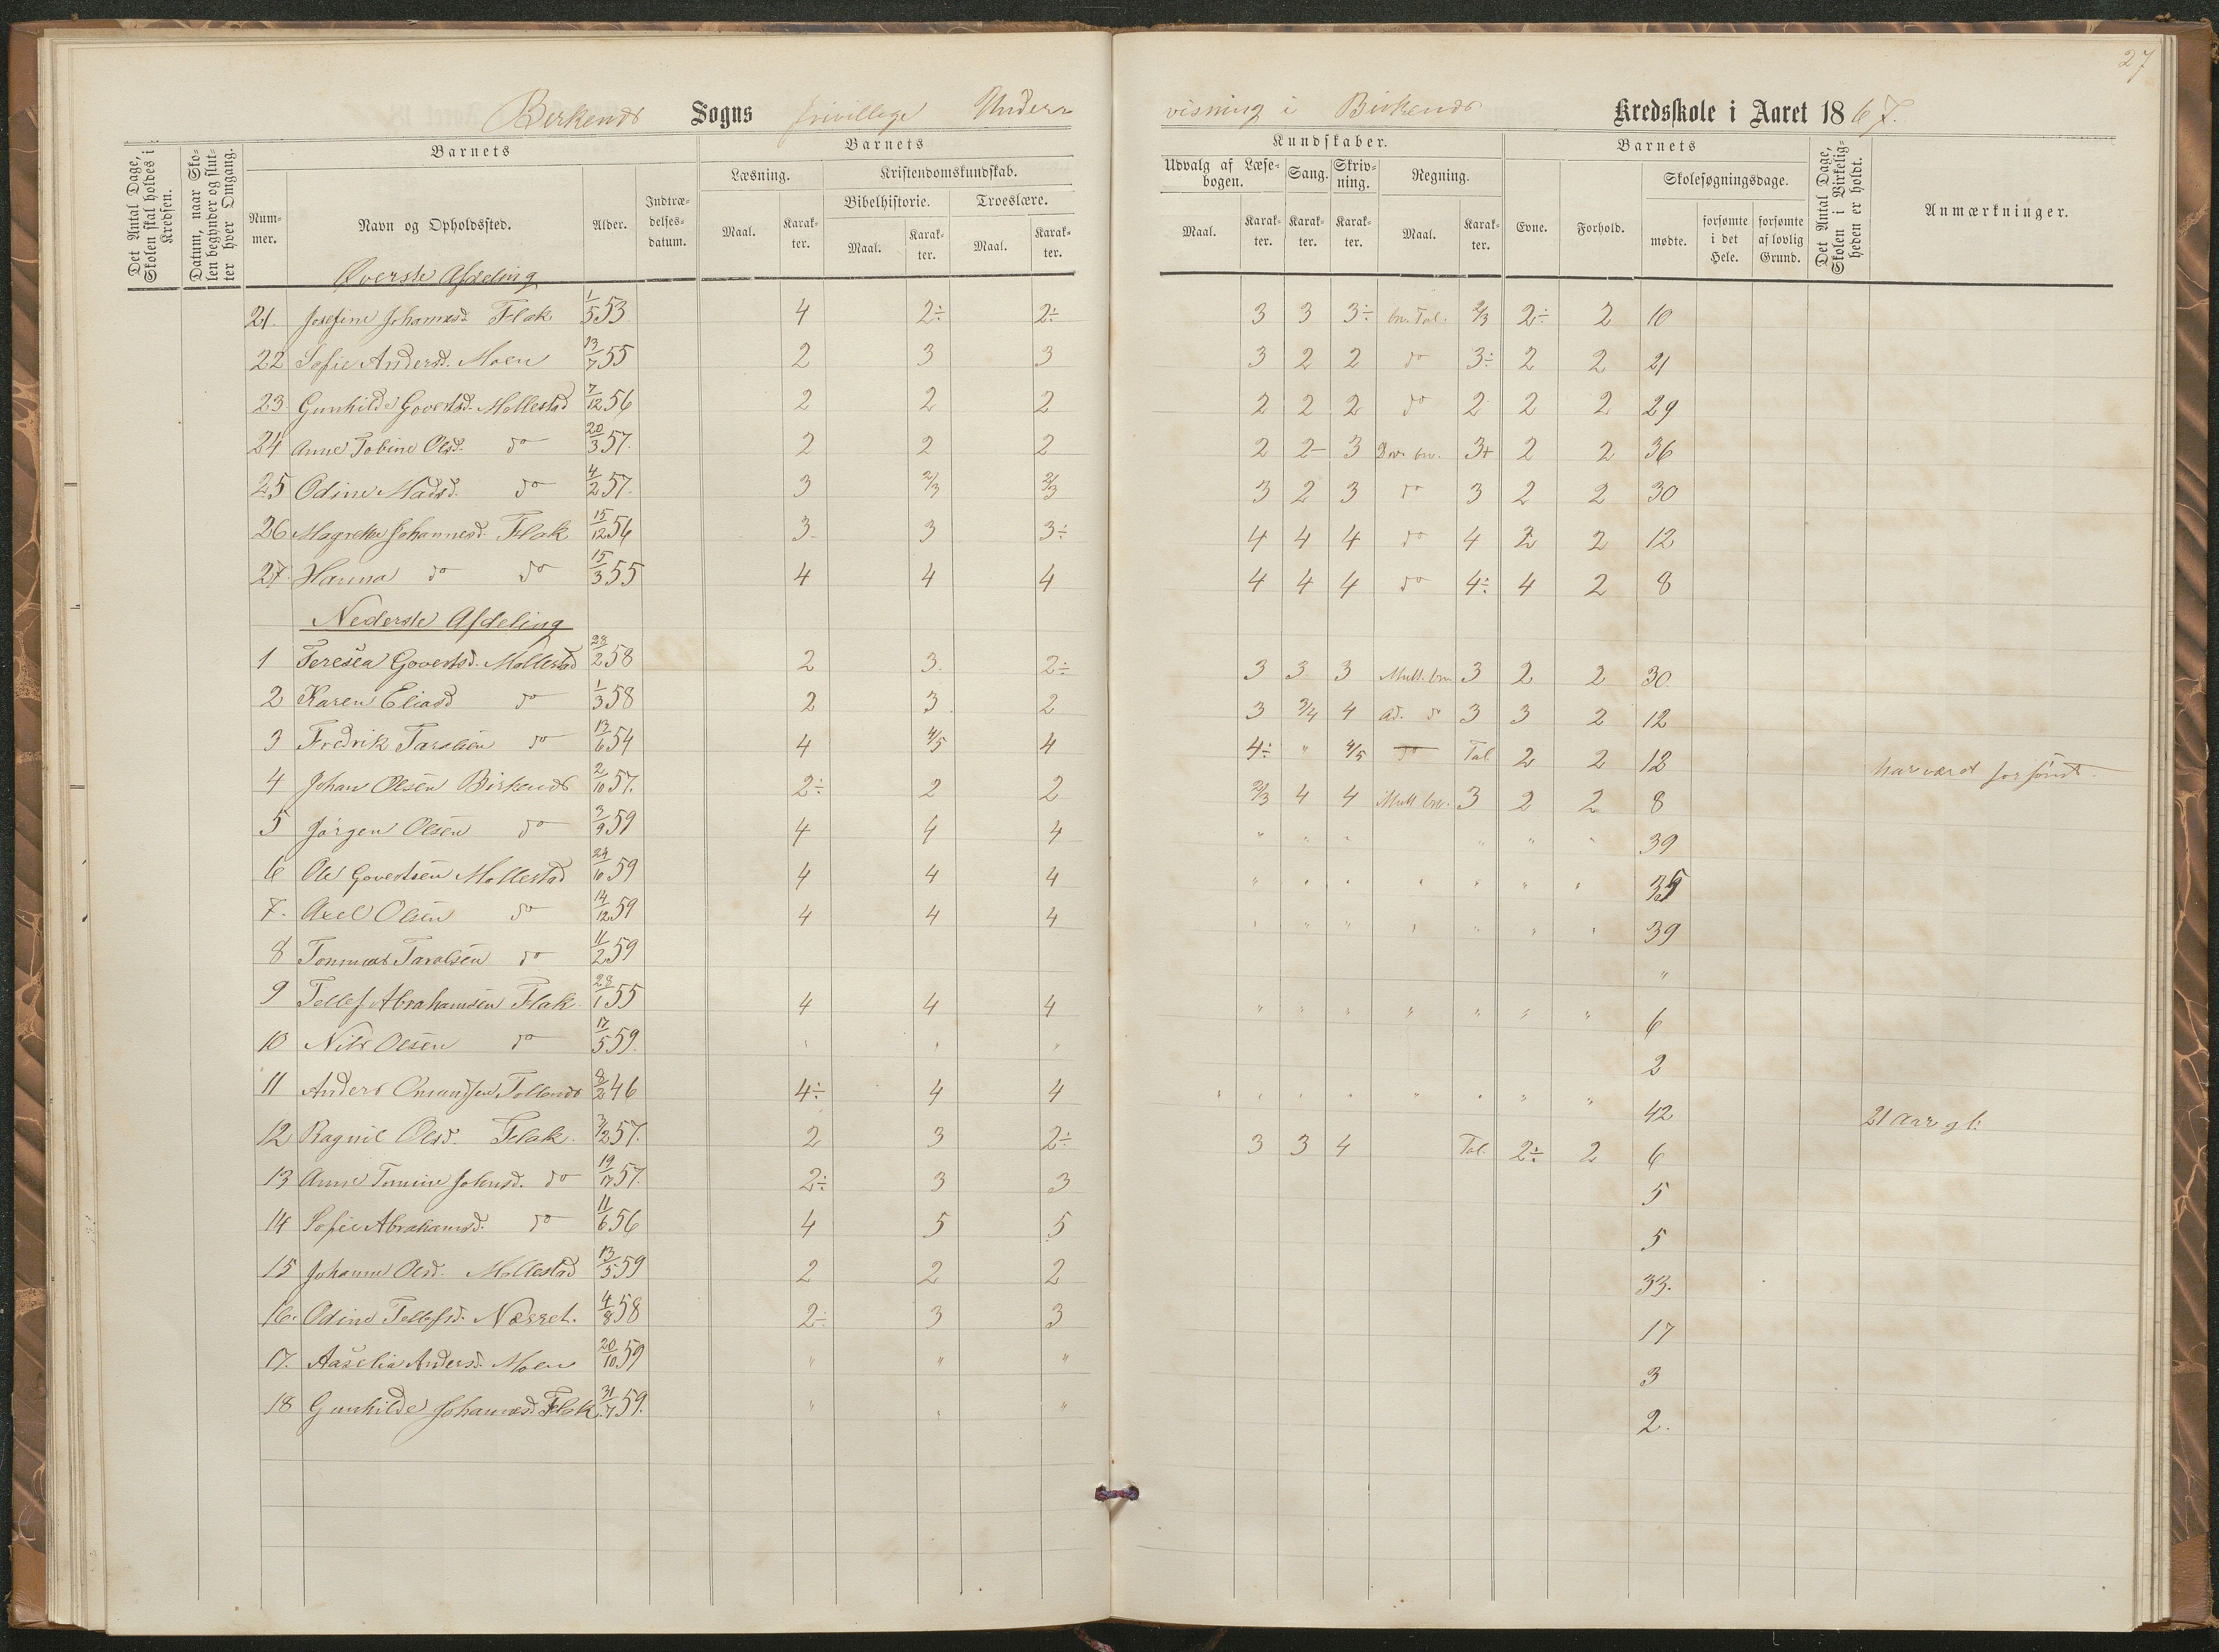 27
Birkenes Sogns frivillige Under-
visning i Birkenes Kredsskole i Aaret 1867.
Det Antal Dage, Skolen skal holdes i Kredsen.
Datum, naar Skolen begynder og slutter hver Omgang.
Barnets
Nummer.
Navn og Opholdssted.
Alder.
Indtrædelses-datum.
Barnets
Læsning.
Maal.
Karakter.
Kristendomskundskab.
Bibelhistorie.
Maal.
Karakter.
Troeslære.
Maal.
Karakter.
Kundskaber.
Udvalg af Læsebogen.
Maal.
Karakter.
Sang.
Karakter.
Skrivning.
Karakter.
Regning.
Maal.
Karakter.
Barnets
Evne.
Forhold.
Skolesøgningsdage.
mødte.
forsømte i det Hele.
forsømte af lovlig Grund.
Det Antal Dage, Skolen i Virkeligheden er holdt.
Anmærkninger.
Øverste Afdeling
21. Josefine Johannesd. Flak 1/5 53 4 2÷ 2÷ 3 3 3÷ bn. Tal. 2/3 2÷ 2 10
22 Sofie Andersd. Moen 13/7 55 2 3 3 3 2 2 do 3÷ 2 2 21
23 Gunhilde Govertsd. Mollestad 7/12 56 2 2 2 2 2 2 do 2 2 2 29
24 Anne Tobine Olsd. do 20/3 57. 2 2 2 2 2- 3 bn. 3+ 2 2 36
25 Odine Madsd. do 4/2 57. 3 2/3 2/3 3 2 3 do 3 2 2 30
26 Magrethe Johannesd. Flak 15/12 56 3- 3 3÷ 4 4 4 do 4 2 2 12
27. Hanna do do 15/3 55 4 4 4 4 4 4 do 4÷ 4 2 8
Nederste Afdeling
1 Teresea Govertsd. Mollestad 23/2 58 2 3. 2÷ 3 3 3 Mult. bn 3 2 2 30.
2 Karen Eliasd do 1/3 58 2 3 2 3 3/4 4 Ad. do 3 3 2 12
3 Fredrik Taralsen do 13/6 54 4 4/5 4 4÷ " 4/5 do Tal 2 2 12 har været forsømt.
4 Johan Olsen Birkenes 2/10 57. 2÷ 2 2 2/3 4 4 Mult bn. 3 2 2 8
5 Jörgen Olsen do 3/9 59 4 4 4 " " " " " " 39
6 Ole Govertsen Mollestad 24/10 59 4 4 4 " " " " " " " 35
7. Axel Olsen do 14/12 59 4 4 4 " " " " " " " 39
8 Tommas Taralsen do 11/2 59 "
9 Tellef Abrahamsen Flak 23/1 55 4 4 4 " " " " " " " 6
10 Nils Olsen do 17/5 59. " " " 2
11 Anders Omundsen Tollenes 8/2 46 4÷ 4 4 " " " " " " " " 42 21 Aar gl:
12 Ragnil Olsd. Flak. 3/2 57. 2 3 2÷ 3 3 4 Tal. 2÷ 2 6
13 Anne Tomine Johnsd. do 19/7 57. 2÷ 3 3 5
14 Sofie Abrahamsd. do 11/6 56 4 5 5 5
15 Johanne Olsd. Mollestad 13/5 59 2 2 2 33.
16. Odine Tellefsd. Næsset. 4/8 58 2÷ 3 3 17
17. Aaselia Andersd. Moen 20/10 59 " " " 3
18 Gunhilde Johannesd. Flak 31/7 59. " " " 2.